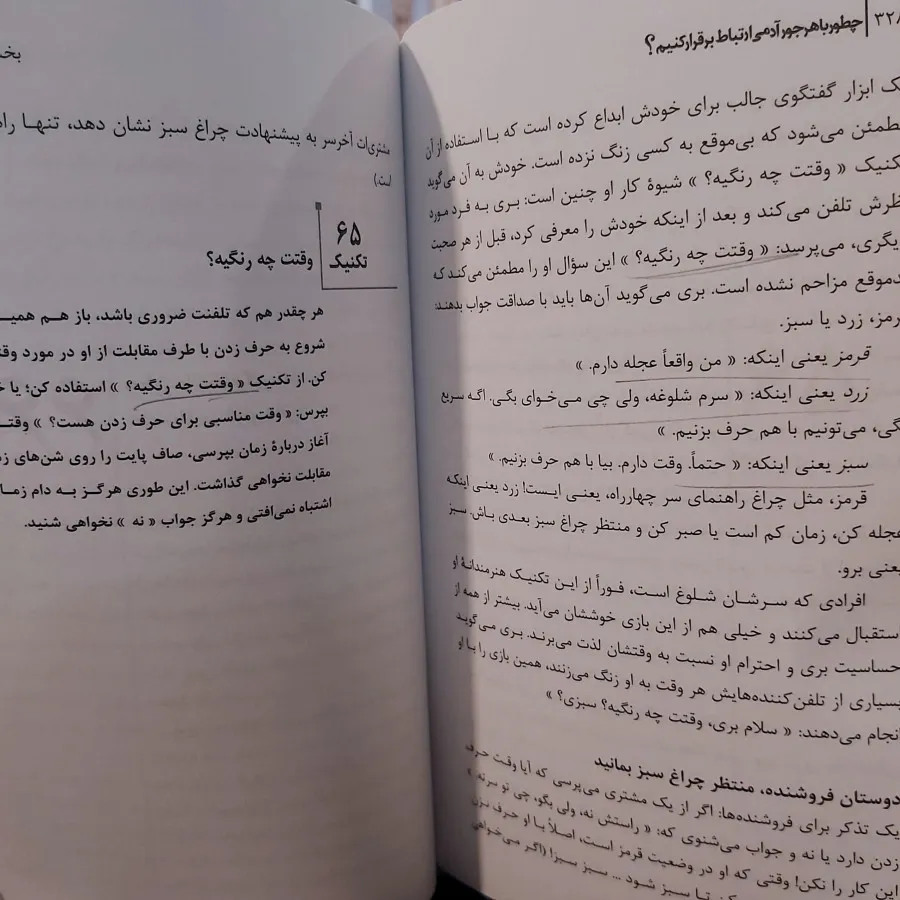 ۳۲۸ چطور با هر جور آدمی ارتباط برقرار کنیم؟
یک ابزار گفتگوی جالب برای خودش ابداع کرده است که با استفاده از آن
مطمئن می‌شود که بی‌موقع به کسی زنگ نزده است. خودش به آن می‌گوید
تکنیک « وقتت چه رنگیه؟ » شیوهٔ کار او چنین است: بری به فرد مورد
نظرش تلفن می‌کند و بعد از اینکه خودش را معرفی کرد، قبل از هر صحبت
دیگری، می‌پرسد: « وقتت چه رنگیه؟ » این سؤال او را مطمئن می‌کند که
بدموقع مزاحم نشده است. بری می‌گوید آن‌ها باید با صداقت جواب بدهند:
قرمز، زرد یا سبز.
قرمز یعنی اینکه: « من واقعاً عجله دارم. »
زرد یعنی اینکه: « سرم شلوغه، ولی چی می‌خوای بگی. اگه سریع
بگی، می‌تونیم با هم حرف بزنیم. »
سبز یعنی اینکه: « حتماً. وقت دارم. بیا با هم حرف بزنیم. »
قرمز، مثل چراغ راهنمای سر چهارراه، یعنی ایست! زرد یعنی اینکه
عجله کن، زمان کم است یا صبر کن و منتظر چراغ سبز بعدی باش. سبز
یعنی برو.
افرادی که سرشان شلوغ است، فوراً از این تکنیک هنرمندانهٔ او
استقبال می‌کنند و خیلی هم از این بازی خوششان می‌آید. بیشتر از همه از
حساسیت بری و احترام او نسبت به وقتشان لذت می‌برند. بری می‌گوید
بسیاری از تلفن‌کننده‌هایش هر وقت به او زنگ می‌زنند، همین بازی را با او
انجام می‌دهند: « سلام بری، وقتت چه رنگیه؟ سبزی؟ »
دوستان فروشنده، منتظر چراغ سبز بمانید
یک تذکر برای فروشنده‌ها: اگر از یک مشتری می‌پرسی که آیا وقت حرف
زدن دارد یا نه و جواب می‌شنوی که: « راستش نه، ولی بگو، چی تو سرته »
این کار را نکن! وقتی که او در وضعیت قرمز است، اصلاً با او حرف نزن
تا سبز شود ... سبز سبز! (اگر می‌خواهی
مشتری‌ات آخرسر به پیشنهادت چراغ سبز نشان دهد، تنها
است.)
۶۵
تکنیک
وقتت چه رنگیه؟
هر چقدر هم که تلفنت ضروری باشد، باز هم
شروع به حرف زدن با طرف مقابلت از او در مورد
کن. از تکنیک « وقتت چه رنگیه؟ » استفاده کن؛ یا
بپرس: « وقت مناسبی برای حرف زدن هست؟ »
آغاز دربارهٔ زمان بپرسی، صاف پایت را روی شن‌های
مقابلت نخواهی گذاشت. این طوری هرگز به دام
اشتباه نمی‌افتی و هرگز جواب « نه » نخواهی شنید.